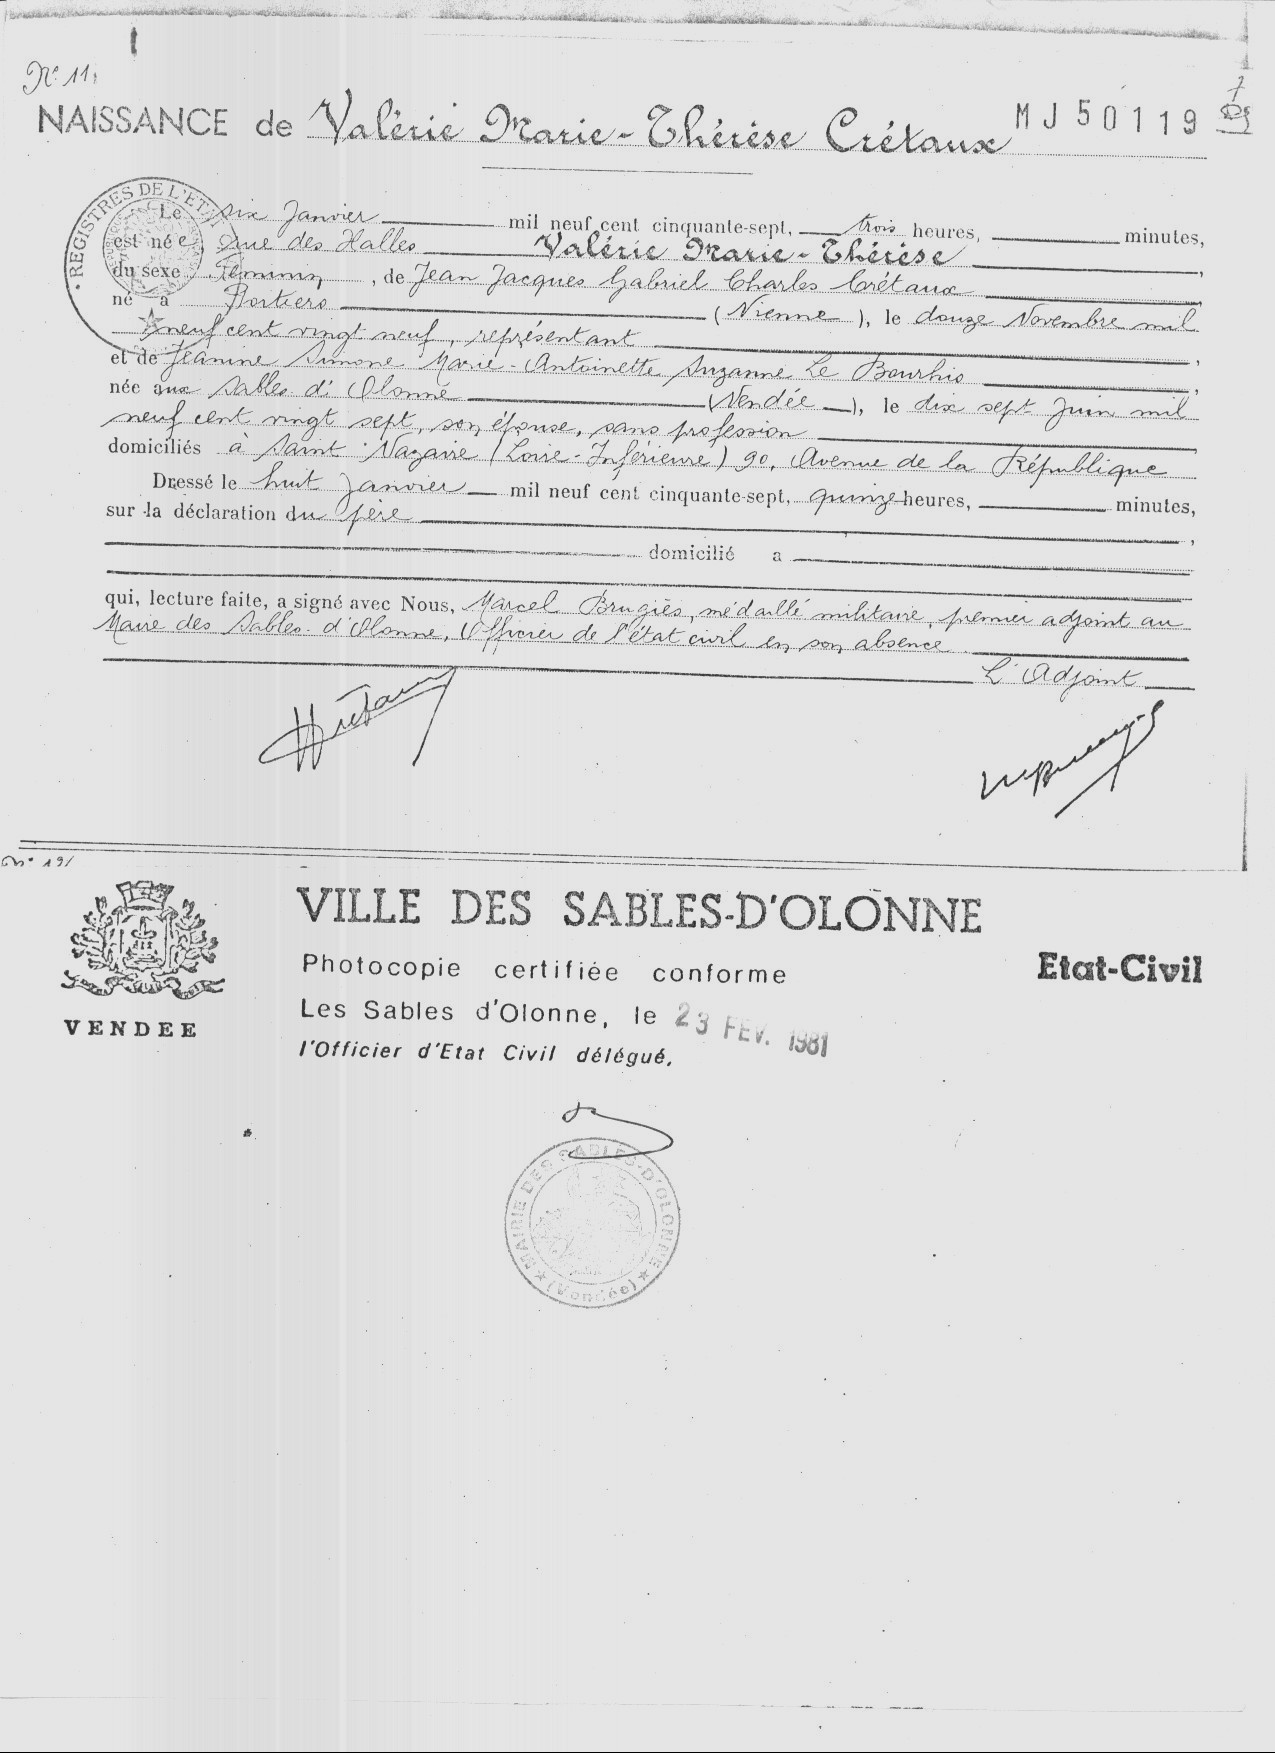 N° 11.
NAISSANCE de Valérie Marie-Thérèse Crétaux MJ50119
REGISTRES DE L'ETAT
Le six Janvier mil neuf cent cinquante-sept, trois heures, minutes,
est née rue des Halles Valérie Marie-Thérèse ,
du sexe féminin, de Jean Jacques Gabriel Charles Crétaux
né à Poitiers (Vienne), le douze Novembre mil
neuf cent vingt neuf, représentant ,
et de Jeanine Simone Marie-Antoinette Suzanne Le Bourhis ,
née aux Sables d'Olonne (Vendée), le dix sept Juin mil
neuf cent vingt sept, son épouse, sans profession
domiciliés à Saint Nazaire (Loire-Inférieure) 90, Avenue de la République
Dressé le huit Janvier mil neuf cent cinquante-sept, quinze heures, minutes,
sur la déclaration du père ,
domicilié a
qui, lecture faite, a signé avec Nous, Marcel Brugiès, médaillé militaire, premier adjoint au
Maire des Sables-d'Olonne, Officier de l'état civil en son absence.
L'Adjoint
VILLE DES SABLES-D'OLONNE
Photocopie certifiée conforme
Etat-Civil
Les Sables d'Olonne, le 23 FEV. 1981
VENDEE
l'Officier d'Etat Civil délégué,
MAIRIE DES SABLES-D'OLONNE
(Vendée)